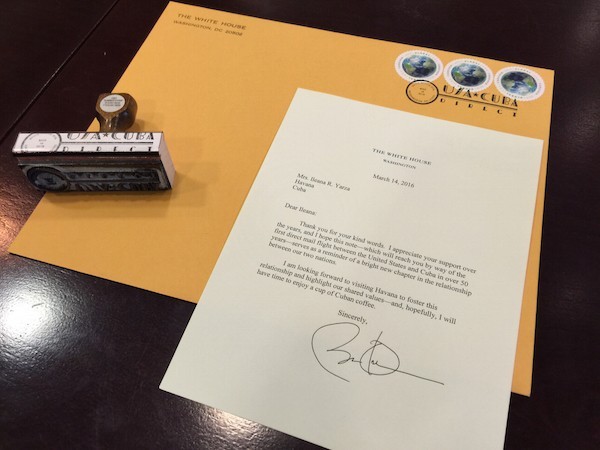 THE WHITE HOUSE
WASHINGTON, DC 20502
USA★CUBA
DIRECT
USA★CUBA
DIRECT
THE WHITE HOUSE
WASHINGTON
March 14, 2016
Mrs. Ileana R. Yarza
Havana
Cuba
Dear Ileana:
Thank you for your kind words. I appreciate your support over
the years, and I hope this note—which will reach you by way of the
first direct mail flight between the United States and Cuba in over 50
years—serves as a reminder of a bright new chapter in the relationship
between our two nations.
I am looking forward to visiting Havana to foster this
relationship and highlight our shared values—and, hopefully, I will
have time to enjoy a cup of Cuban coffee.
Sincerely,